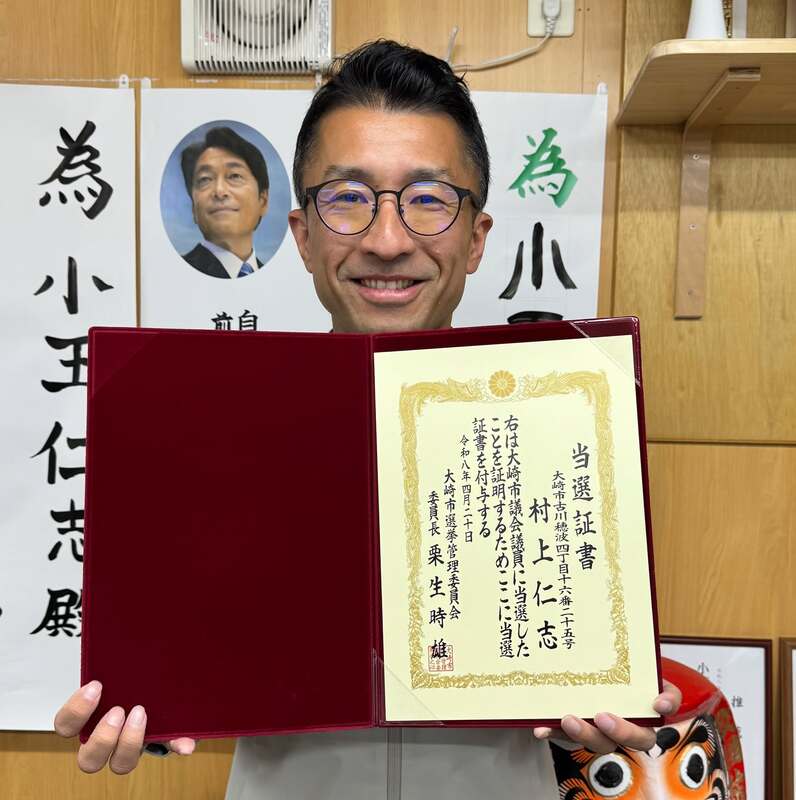 為小
自
前
為小玉仁志殿
当選証書
大崎市古川穂波四丁目十六番二十五号
村上仁志
右は大崎市議会議員に当選した
ことを証明するためここに当選
証書を付与する
令和八年四月二十日
大崎市選挙管理委員会
委員長 栗生時雄
推
小